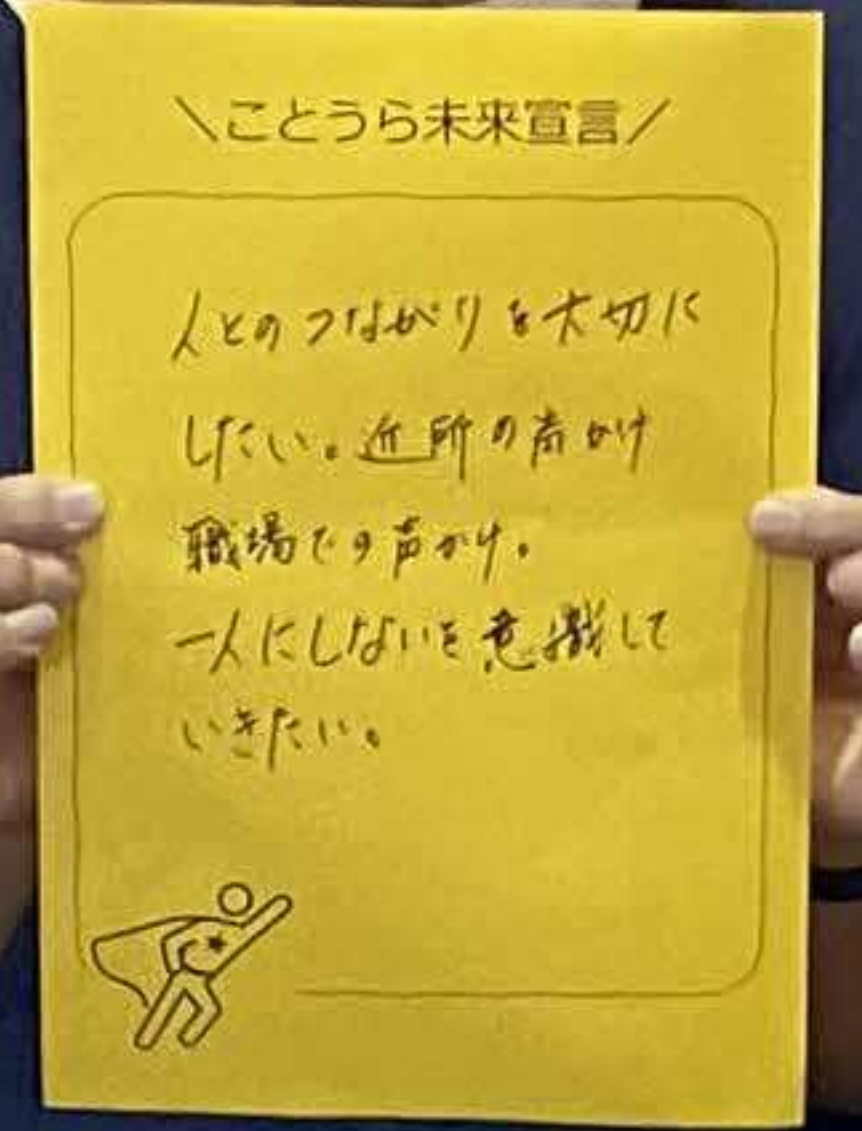 \ことうら未来宣言/
人とのつながりを大切に
したい。近所の声かけ
職場での声かけ。
一人にしないを意識して
いきたい。